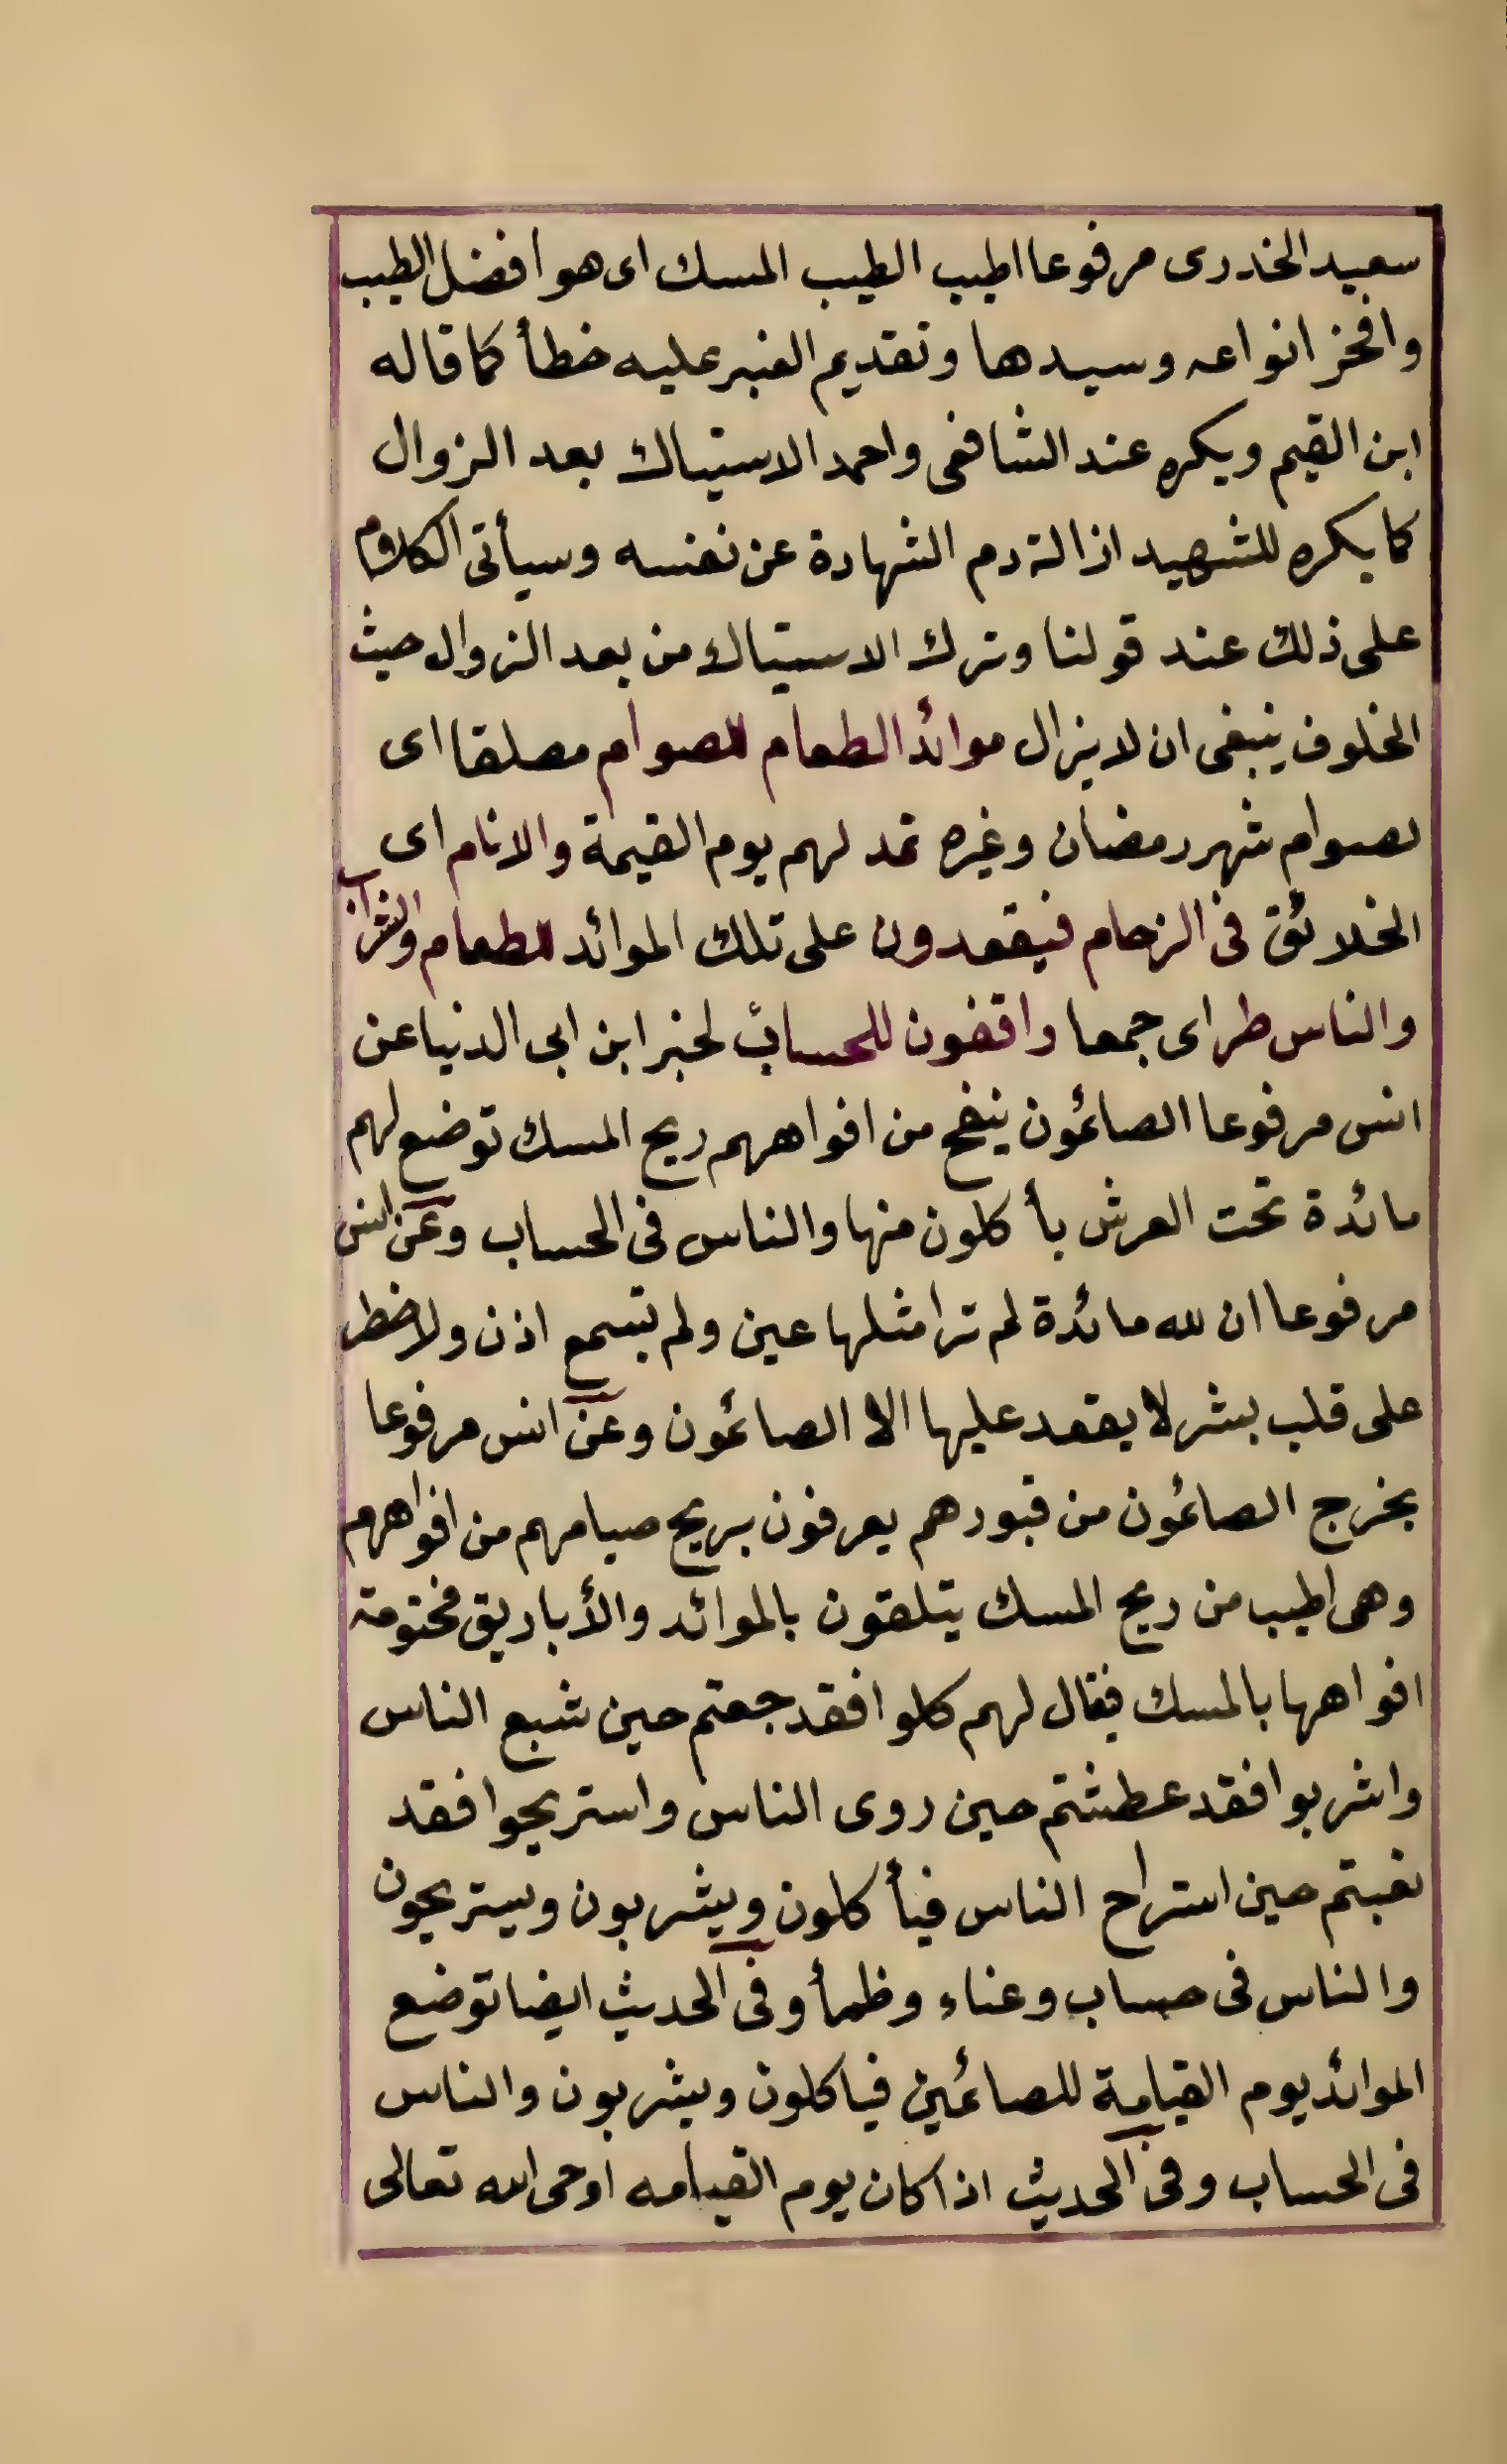 سعيد الخدرى مرفوعا اطيب الطيب المسك اى هو افضل الطيب
وافخر انواعه وسيدها وتقديم العنبر عليه خطأ كما قاله
ابن القيم ويكره عند الشافعى واحمد الاستياك بعد الزوال
كما يكره للشهيد ازالة دم الشهادة عن نفسه وسيأتى الكلام
على ذلك عند قولنا وترك الاستياك من بعد الزوال حيث
الخلوف ينبغى ان لا يزال موائد الطعام للصوام مطلقا اى
لصوام شهر رمضان وغيره تمد لهم يوم القيمة والانام اى
الخلائق فى الزحام فيقعدون على تلك الموائد للطعام والشراب
والناس طرا اى جمعا واقفون للحساب لخبر ابن ابى الدنيا عن
انس مرفوعا الصائمون ينفح من افواههم ريح المسك توضع لهم
مائدة تحت العرش يأكلون منها والناس فى الحساب وعن انس
مرفوعا ان لله مائدة لم ترا مثلها عين ولم تسمع اذن ولا خطر
على قلب بشر لا يقعد عليها الا الصائمون وعن انس مرفوعا
يخرج الصائمون من قبورهم يعرفون بريح صيامهم من افواههم
وهى اطيب من ريح المسك يتلقون بالموائد والأباريق مختومة
افواهها بالمسك فيقال لهم كلوا فقد جعتم حين شبع الناس
واشربوا فقد عطشتم حين روى الناس واستريحوا فقد
تعبتم حين استراح الناس فيأكلون ويشربون ويستريحون
والناس فى حساب وعناء وظمأ وفى الحديث ايضا توضع
الموائد يوم القيامة للصائمين فياكلون ويشربون والناس
فى الحساب وفى الحديث اذا كان يوم القيامه اوحى الله تعالى